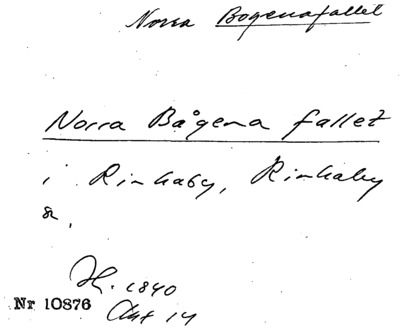 Norra Bogenafallet
Norra Bågena fallet
i Rinkaby, Rinkaby
sn.
H. 1840
Akt 14
Nr 10876